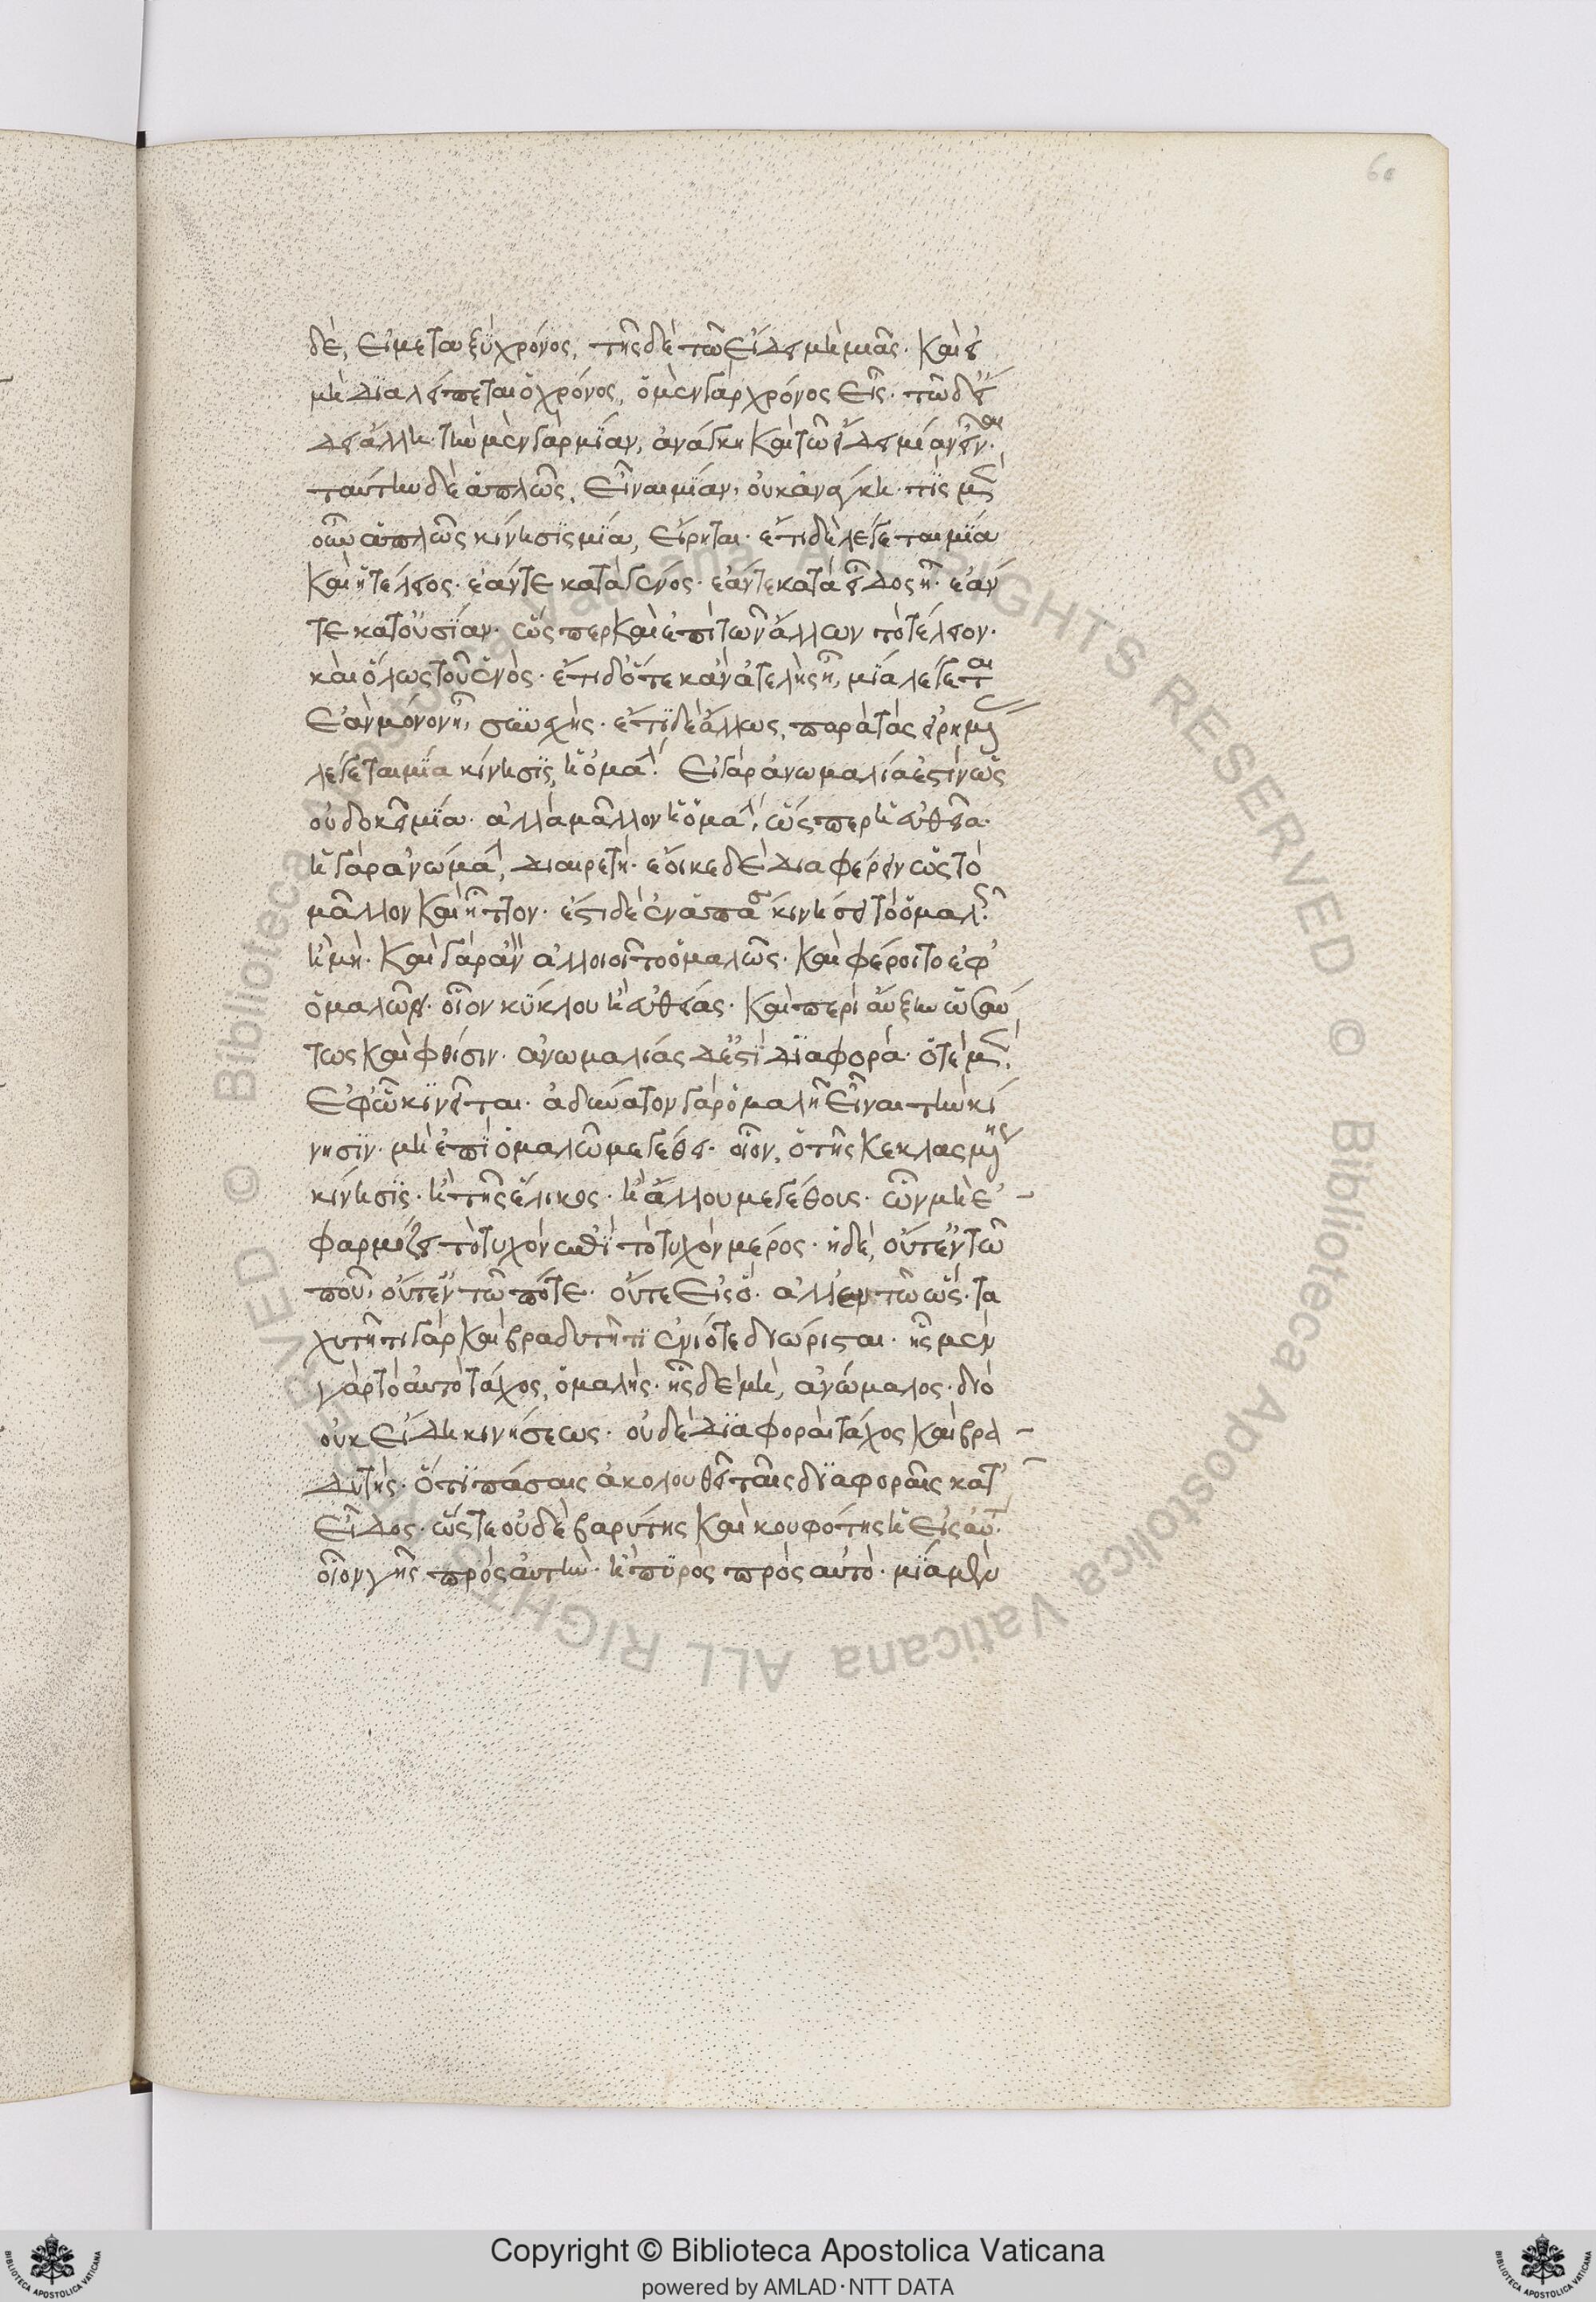 60
δὲ, εἰ μεταξὺ χρόνος, τῆς δὲ τῷ εἴδει μὴ μιᾶς. καὶ εἰ
μὴ διαλείπεται ὁ χρόνος, ὁ μὲν γὰρ χρόνος εἷς. τῷ δ' εἴ
δει ἄλλη. τὴν μὲν γὰρ μίαν, ἀνάγκη καὶ τῷ εἴδει μίαν εἶναι.
ταύτην δὲ ἁπλῶς, εἶναι μίαν, οὐκ ἀνάγκη. τίς μὲν
οὖν ἁπλῶς κίνησις μία, εἴρηται. ἔτι δὲ λέγεται μία
καὶ ἡ τέλειος. ἐάν τε κατὰ γένος. ἐάν τε κατὰ εἶδος ἦ. ἐάν
τε κατ' οὐσίαν. ὥσπερ καὶ ἐπὶ τῶν ἄλλων τὸ τέλειον.
καὶ ὅλως τοῦ ἑνός. ἔτι δ' ὅτε κἂν ἀτελὴς ἦ, μία λέγεται
ἐὰν μόνον ἦ, συνεχής. ἔτι δὲ ἄλλως, παρὰ τὰς εἰρημέ
λέγεται μία κίνησις, ἡ ὁμαλή. εἰ γὰρ ἀνωμαλία ἐστὶν ὡς
οὐ δοκεῖ μία. ἀλλὰ μᾶλλον ἡ ὁμαλή, ὥσπερ ἡ εὐθεῖα.
ἡ γὰρ ἀνώμαλ, διαιρετή. ἔοικε δὲ διαφέρειν ὡς τὸ
μᾶλλον καὶ ἧττον. ἔστι δὲ ἐν ἁπάσ κινήσει τὸ ὁμαλῶς
ἢ μή. καὶ γὰρ ἂν ἀλλοιοῖτο ὁμαλῶς. καὶ φέροιτο ἐφ'
ὁμαλῷ. οἷον κύκλου ἢ εὐθείας. καὶ περὶ αὔξην ὡσαύ
τως καὶ φθίσιν. ἀνωμαλίας δ' ἐστὶ διαφορά. ὁτὲ μὲν
ἐφ' ὧ κινεῖται. ἀδύνατον γὰρ ὁμαλῆ εἶναι τὴν κί
νησιν. μὴ ἐπὶ ὁμαλῷ μεγέθει. οἷον, ὁ τῆς κεκλασμένης
κίνησις. ἢ τῆς ἕλικος. ἢ ἄλλου μεγέθους. ὧν μὴ ἐ-
φαρμόζει τὸ τυχὸν ἐπὶ τὸ τυχὸν μέρος. ἡ δὲ, οὔτ' ἐν τῷ
ποῦ, οὔτ' ἐν τῷ πότε. οὔτε εἰς ὅ. ἀλλ' ἐν τῷ ὥς. τα
χυτῆτι γὰρ καὶ βραδυτῆτι ἐνίοτε διώρισται. ἧς μὲν
γὰρ τὸ αὐτὸ τάχος, ὁμαλής. ἧς δὲ μὴ, ἀνώμαλος. διὸ
οὐκ εἴδη κινήσεως. οὐδὲ διαφοραὶ τάχος καὶ βρα-
δυτής. ὅτι πάσαις ἀκολουθεῖ ταῖς διαφοραῖς κατ'
εἶδος. ὥστε οὐδὲ βαρύτης καὶ κουφότης ἡ εἰς αὐτ.
οἷον γῆς πρὸς αὐτήν. ἢ πυρὸς πρὸς αὐτό. μία μὲν
Copyright © Biblioteca Apostolica Vaticana
powered by AMLAD·NTT DATA